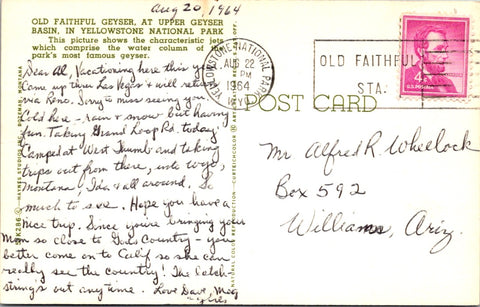 Aug 20, 1964
OLD FAITHFUL GEYSER, AT UPPER GEYSER
BASIN, IN YELLOWSTONE NATIONAL PARK
This picture shows the characteristic jets
which comprise the water column of the
park's most famous geyser.
Dear Al, Vacationing here this year.
Came up thru Las Vegas & will return
via Reno. Sorry to miss seeing you.
Cold here - rain & snow but having
fun. Taking Grand Loop Rd. today.
Camped at West Thumb and taking
trips out from there, into Wyo,
Montana, Ida & all around. So
much to see. Hope you have a
nice trip. Since you're bringing your
Mom so close to God's Country - you
better come on to Calif so she can
really see the country! The latch
string's out any time. Love Dave, Mag
YELLOWSTONE NATIONAL PARK
AUG 22
PM
1964
WYO
OLD FAITHFUL
STA.
4¢
U.S. POSTAGE
POST CARD
Mr Alfred R. Wheelock
Box 592
Williams, Ariz.